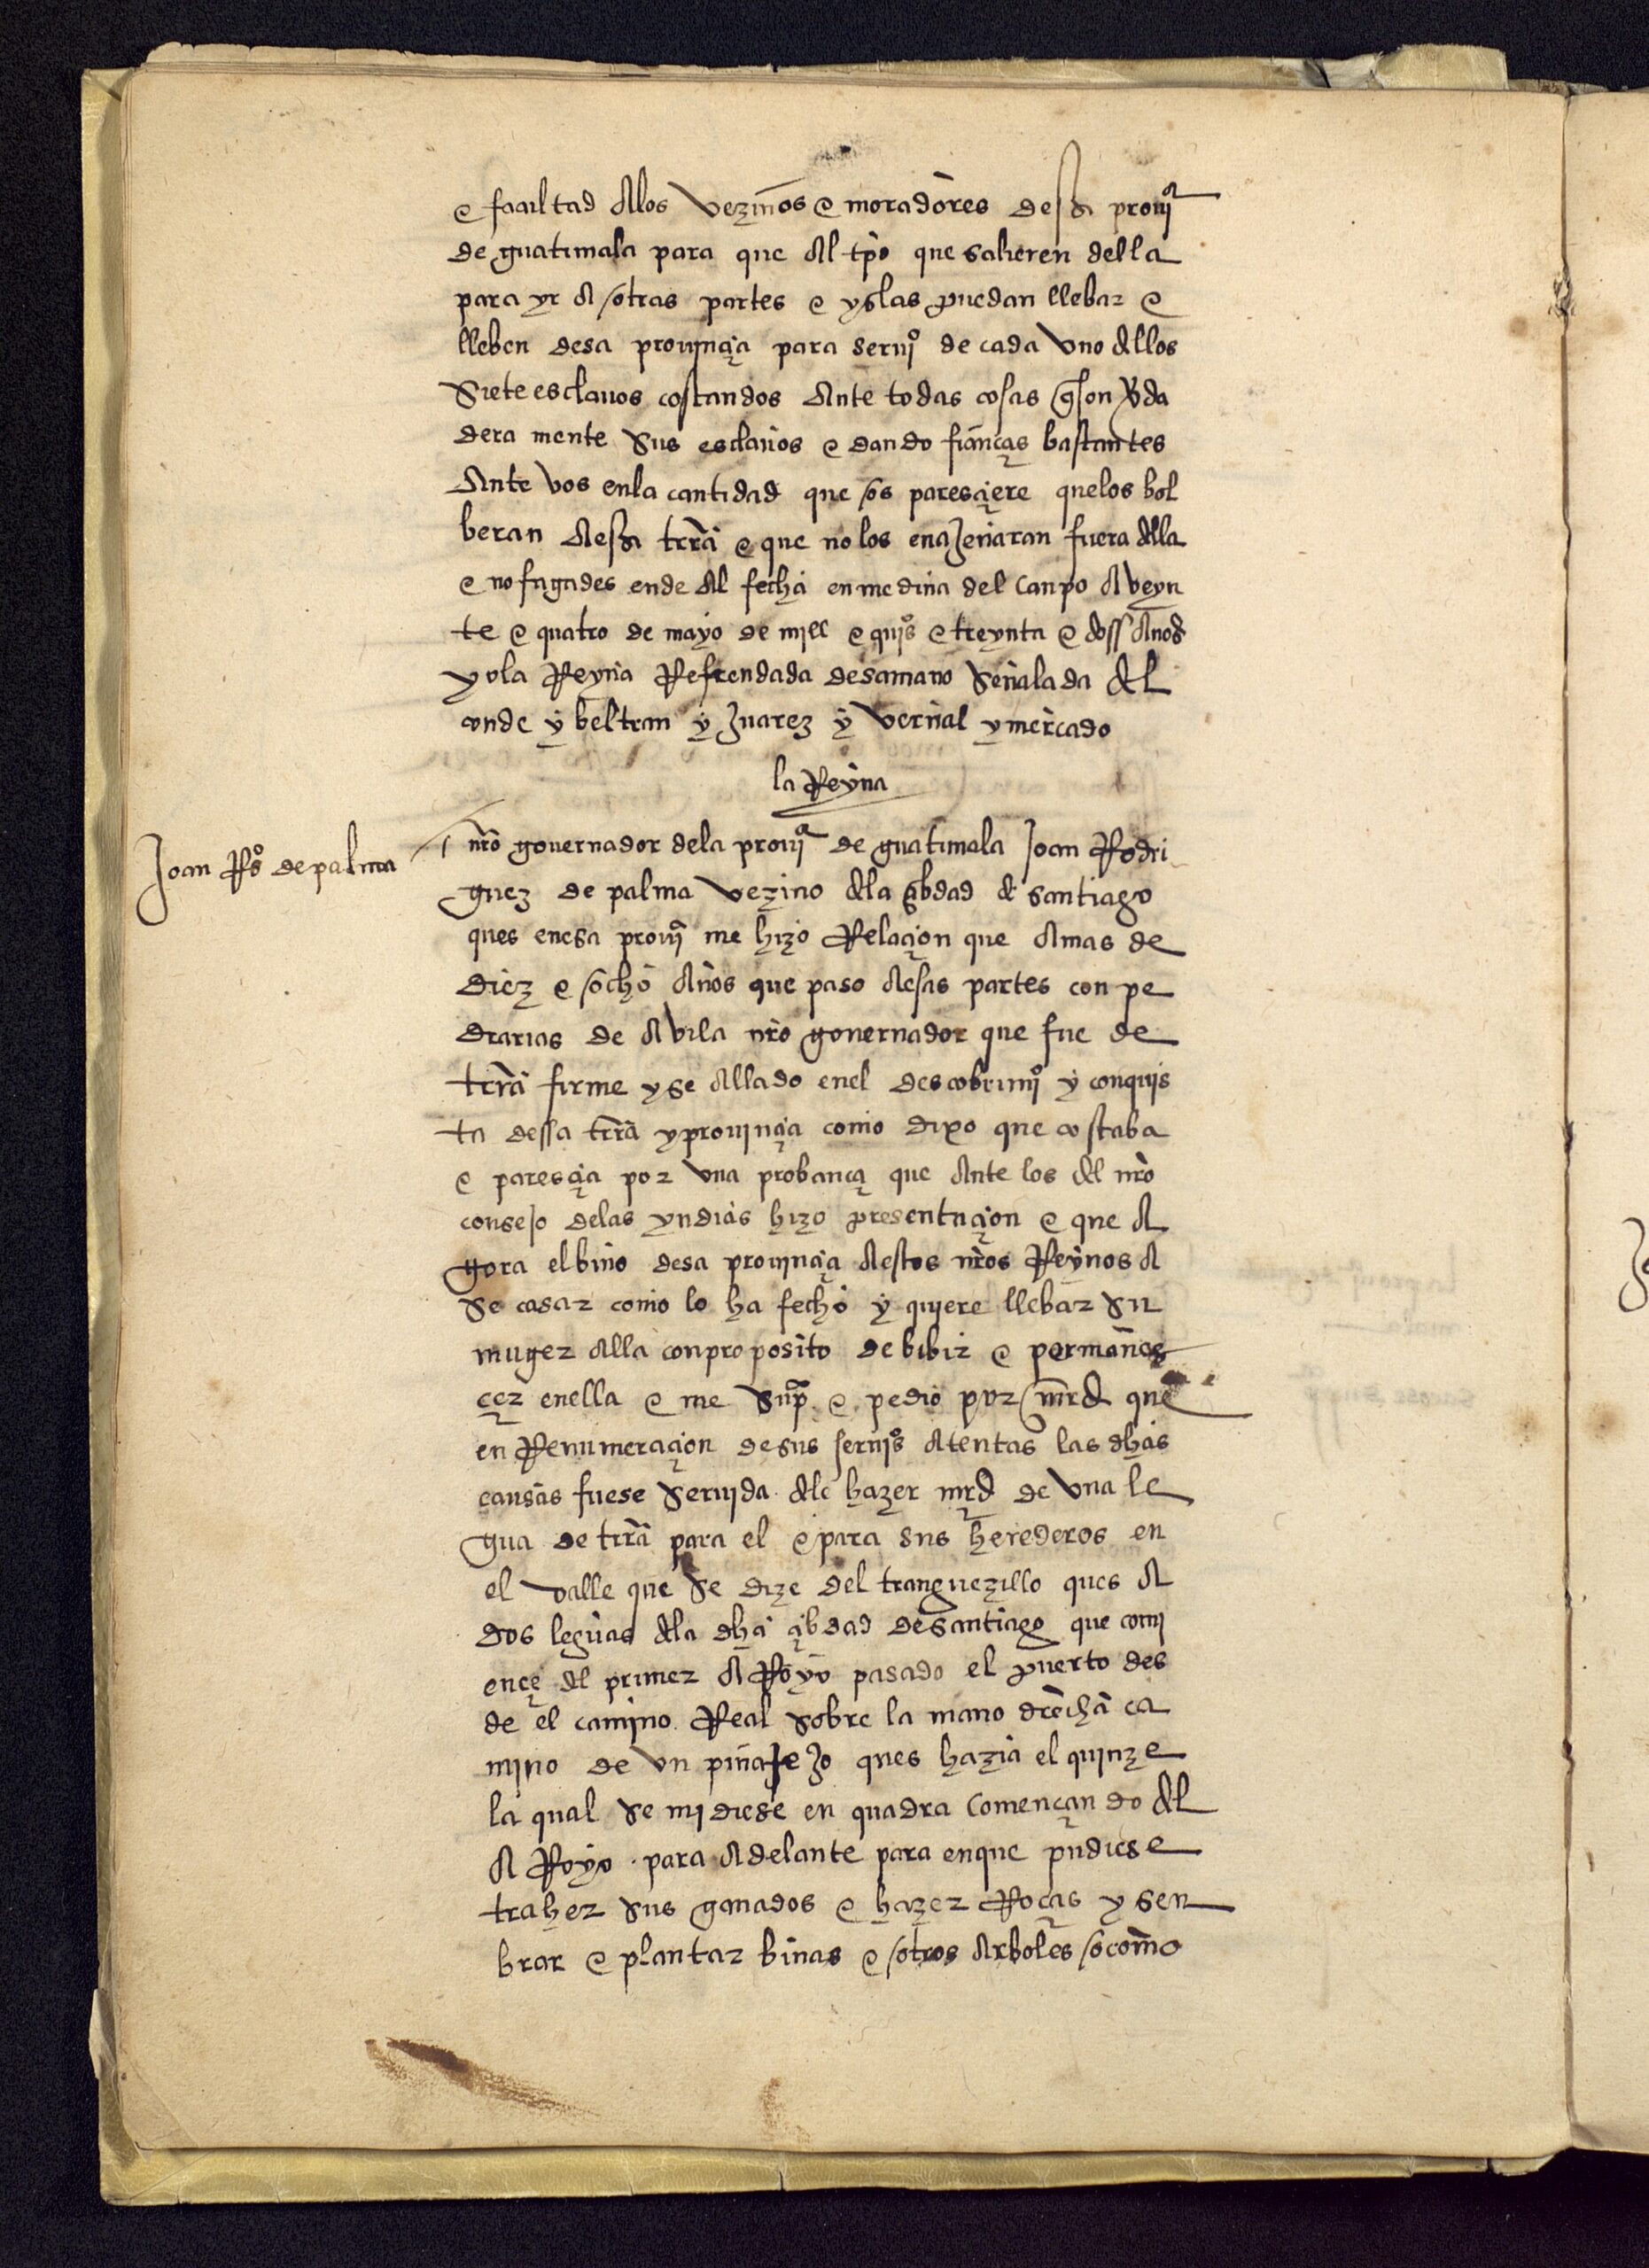 e facultad a los vezinos e moradores desta provinª
de guatimala para que al tpo que salieren della
para yr a otras partes e yslas puedan llebar e
lleben desa provinçia para servº de cada vno dellos
siete esclavos costandos ante todas cosas q son Vda
dera mente sus esclavos e dando fianças bastantes
ante vos en la cantidad que os paresçiere que los bol
beran a esta trra e que no los enajenaran fuera della
e no fagades ende al fecha en medina del canpo a veyn
te e quatro de mayo de mill e quiºs e treynta e doss años
yo la Reyna Refrendada de samano señalada del
conde y beltran y Juarez y vernal y mercado
la Reyna
Joan Rºs de palma
nro governador de la provinª de guatimala Joan Rodri
guez de palma vezino dela çibdad de santiago
ques en esa provinª me hizo Relaçion que a mas de
diez e ocho años que paso a esas partes con pe
drarias de avila nro governador que fue de
trra firme y se allado en el descobrimiº y conquis
ta dessa trra y provinçia como dixo que costaba
e paresçia por vna probança que ante los del nro
consejo de las yndias hizo presentaçion e que a
gora el bino desa provinçia a estos nros Reynos a
se casar como lo ha fecho y quiere llebar su
muger alla con proposito de bibir e permanes
çer en ella e me supº e pedio por mrd que
en Renumeraçion de sus serviºs atentas las dhas
causas fuese servida dele hazer mrd de vna le
gua de trra para el e para sus herederos en
el valle que se dize del tranguezillo ques a
dos leguas dela dha çibdad de santiago que comi
ençe del primer aRoyo pasado el puerto des
de el camino Real sobre la mano drecha ca
mino de vn pinalejo ques hazia el quinze
la qual se midiese en quadra començando del
aRoyo para adelante para en que pudiese
traher sus ganados e hazer Roças y sen
brar e plantar binas e otros arboles o como